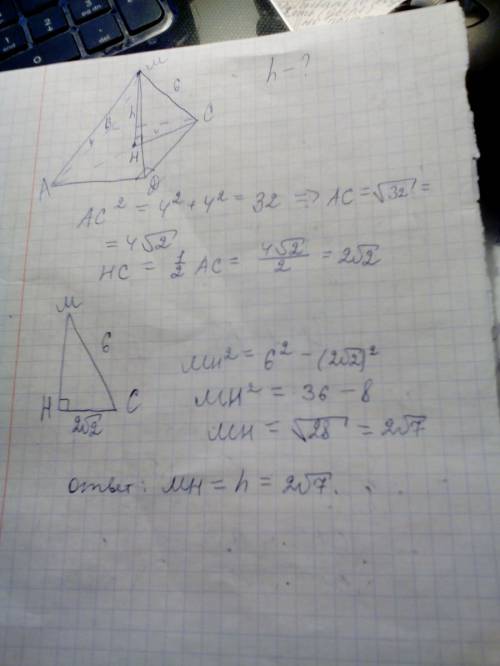 M
h - ?
6
h
C
B
H
A
D
AC² = 4² + 4² = 32 => AC = √32 =
= 4√2
HC = 1/2 AC = 4√2/2 = 2√2
M
6
H
C
2√2
MH² = 6² - (2√2)²
MH² = 36 - 8
MH = √28 = 2√7
Ответ: MH = h = 2√7.